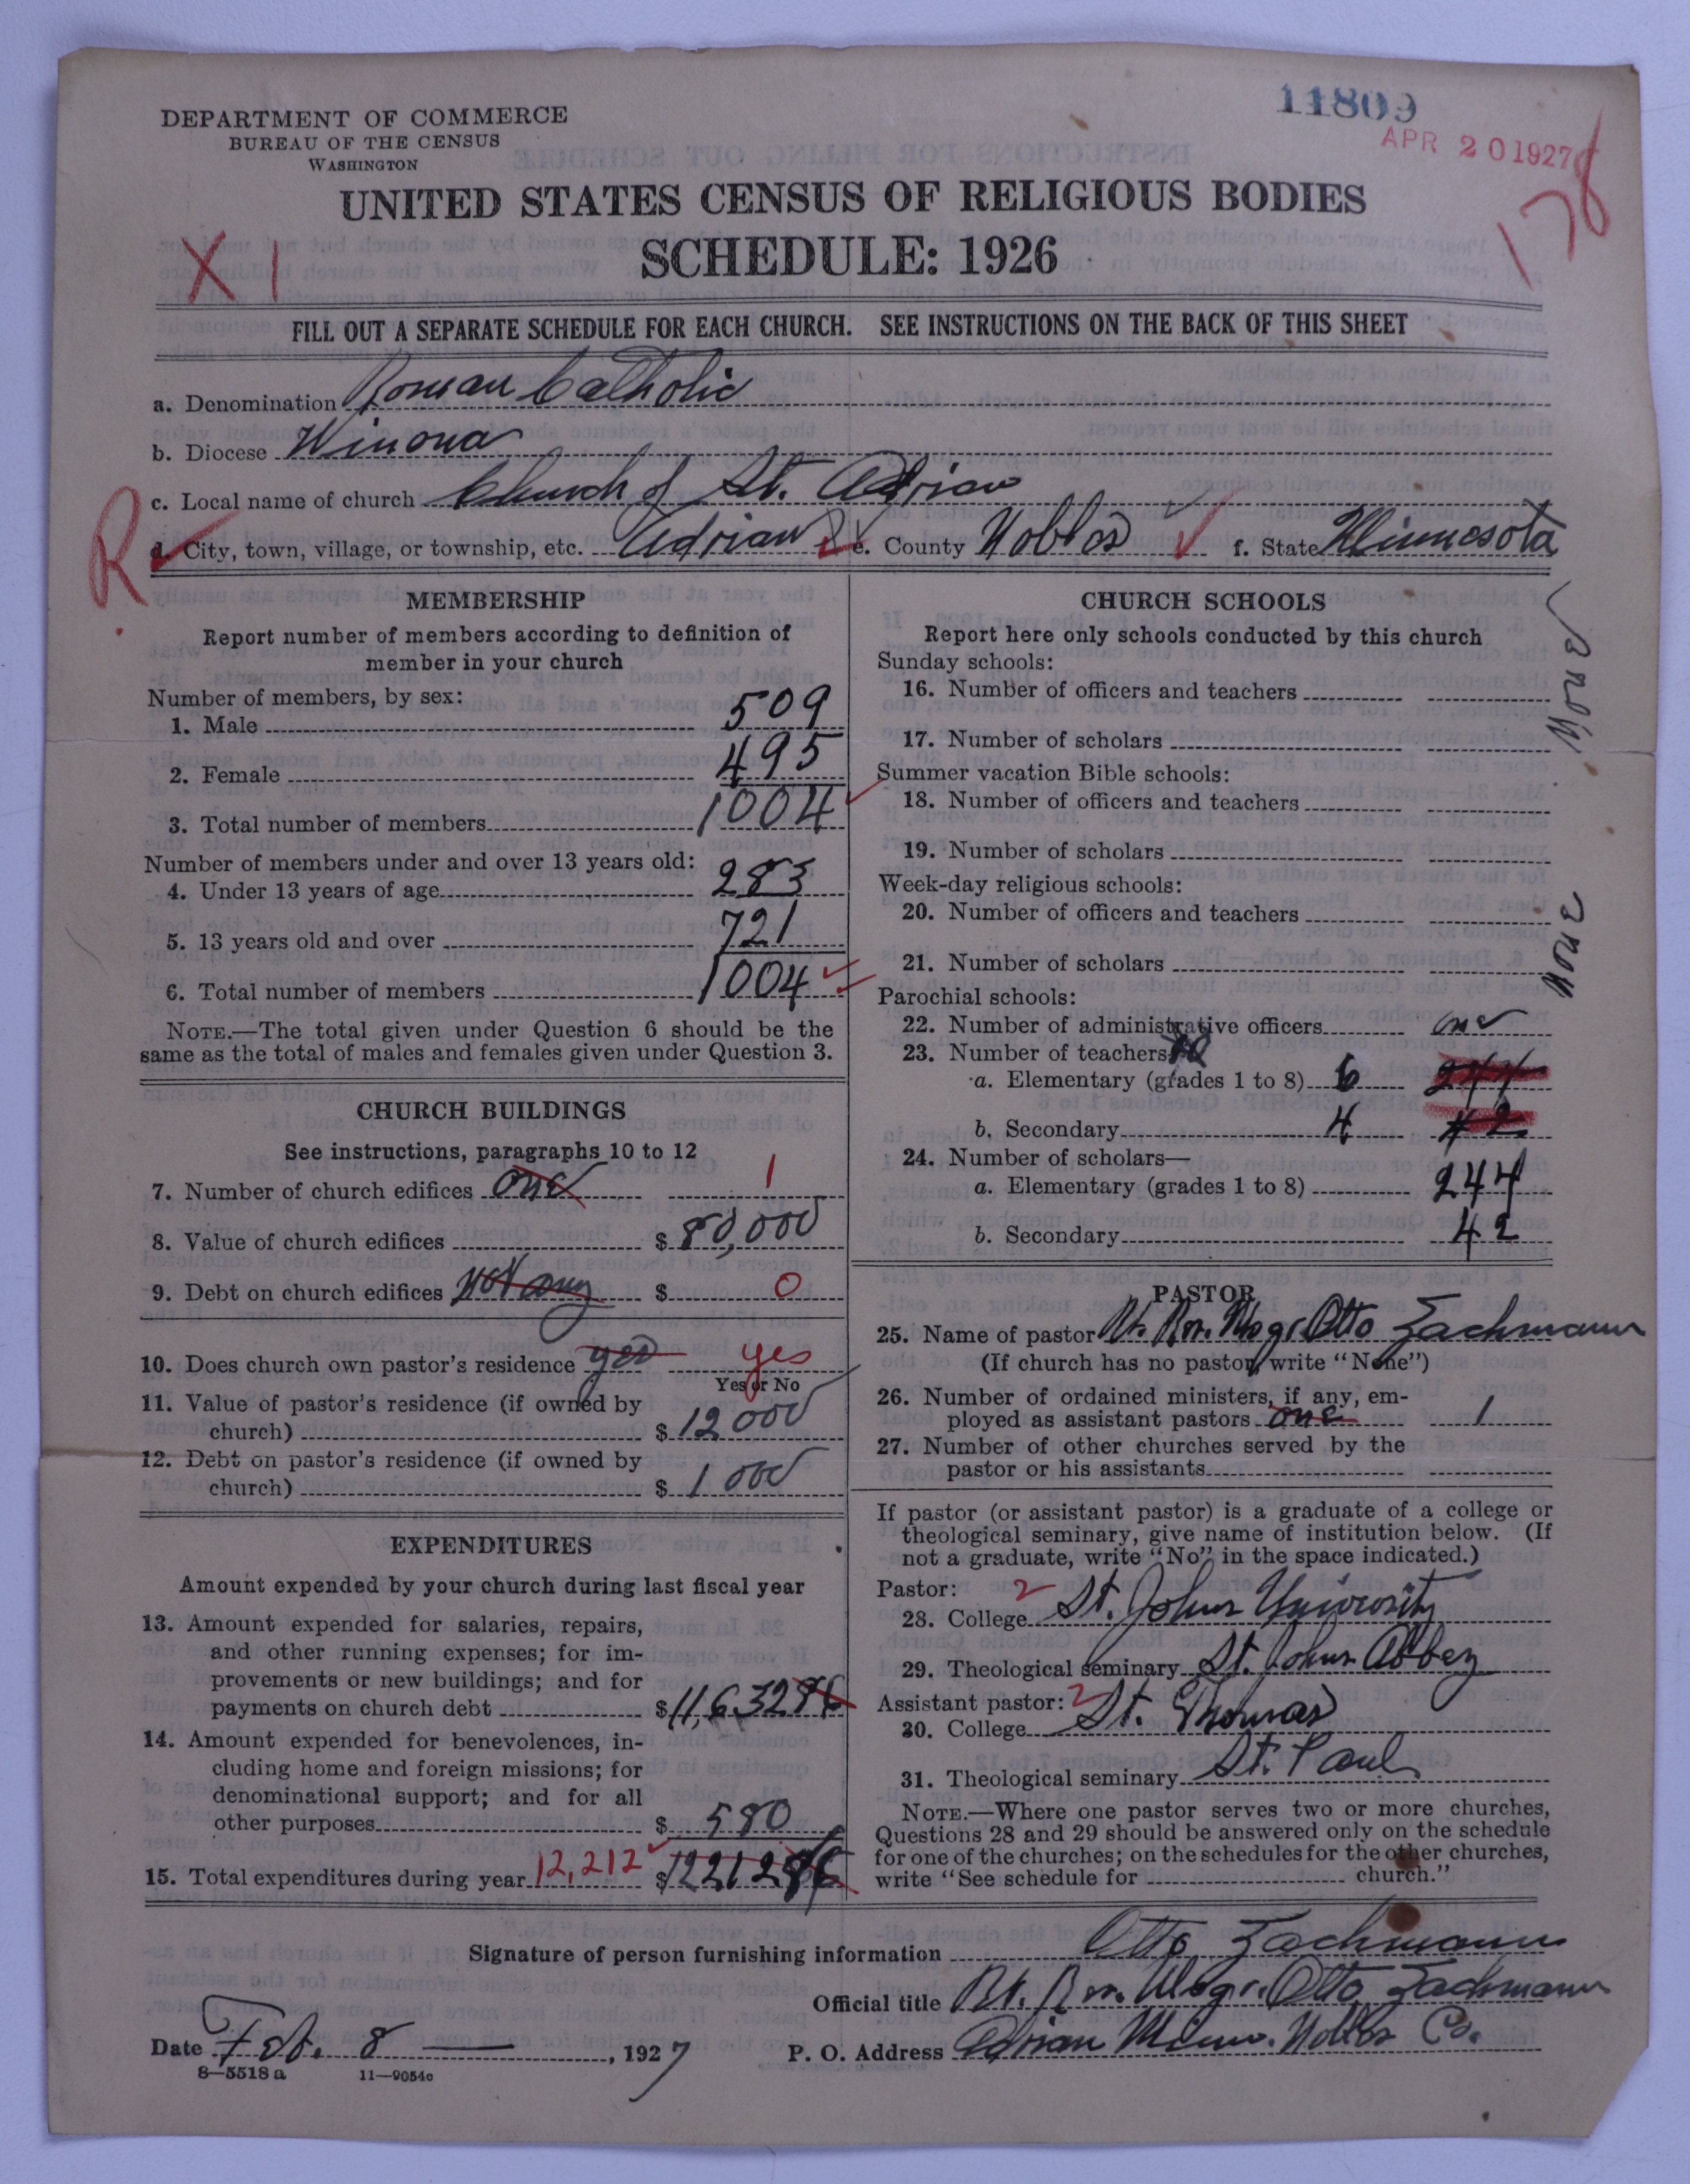 11809
APR 20 1927
178
DEPARTMENT OF COMMERCE
BUREAU OF THE CENSUS
WASHINGTON
UNITED STATES CENSUS OF RELIGIOUS BODIES
X 1
SCHEDULE: 1926
FILL OUT A SEPARATE SCHEDULE FOR EACH CHURCH. SEE INSTRUCTIONS ON THE BACK OF THIS SHEET
a. Denomination Roman Catholic
b. Diocese Winona
c. Local name of church Church of St. Adrian
R
d. City, town, village, or township, etc. Adrian e. County Nobles f. State Minnesota
MEMBERSHIP
Report number of members according to definition of
member in your church
Number of members, by sex:
1. Male 509
2. Female 495
3. Total number of members 1004
Number of members under and over 13 years old:
4. Under 13 years of age 283
5. 13 years old and over 721
6. Total number of members 1004
NOTE.—The total given under Question 6 should be the
same as the total of males and females given under Question 3.
CHURCH BUILDINGS
See instructions, paragraphs 10 to 12
7. Number of church edifices one 1
8. Value of church edifices $ 80,000
9. Debt on church edifices Not any $ 0
10. Does church own pastor's residence yes yes
Yes or No
11. Value of pastor's residence (if owned by
church) $ 12 000
12. Debt on pastor's residence (if owned by
church) $ 1 000
EXPENDITURES
Amount expended by your church during last fiscal year
13. Amount expended for salaries, repairs,
and other running expenses; for im-
provements or new buildings; and for
payments on church debt $ 11,632 86
14. Amount expended for benevolences, in-
cluding home and foreign missions; for
denominational support; and for all
other purposes $ 580
15. Total expenditures during year 12,212 $ 12212 86
CHURCH SCHOOLS
Report here only schools conducted by this church
Sunday schools:
16. Number of officers and teachers
17. Number of scholars
None
Summer vacation Bible schools:
18. Number of officers and teachers
19. Number of scholars
Week-day religious schools:
20. Number of officers and teachers
21. Number of scholars
None
Parochial schools:
22. Number of administrative officers one
23. Number of teachers 10
a. Elementary (grades 1 to 8) 6 244
b. Secondary 4 42
24. Number of scholars—
a. Elementary (grades 1 to 8) 244
b. Secondary 42
PASTOR
25. Name of pastor Rt. Rev. Msgr. Otto Zachmann
(If church has no pastor, write "None")
26. Number of ordained ministers, if any, em-
ployed as assistant pastors one 1
27. Number of other churches served by the
pastor or his assistants
If pastor (or assistant pastor) is a graduate of a college or
theological seminary, give name of institution below. (If
not a graduate, write "No" in the space indicated.)
Pastor: 2
28. College St. Johns University
29. Theological seminary St. Johns Abbey
Assistant pastor: 2
30. College St. Thomas
31. Theological seminary St. Paul
NOTE.—Where one pastor serves two or more churches,
Questions 28 and 29 should be answered only on the schedule
for one of the churches; on the schedules for the other churches,
write "See schedule for church."
Signature of person furnishing information Otto Zachmann
Official title Rt. Rev. Msgr. Otto Zachmann
Date Feb. 8, 1927 P. O. Address Adrian Minn. Nobles Co.
8—5518 a 11—9054c